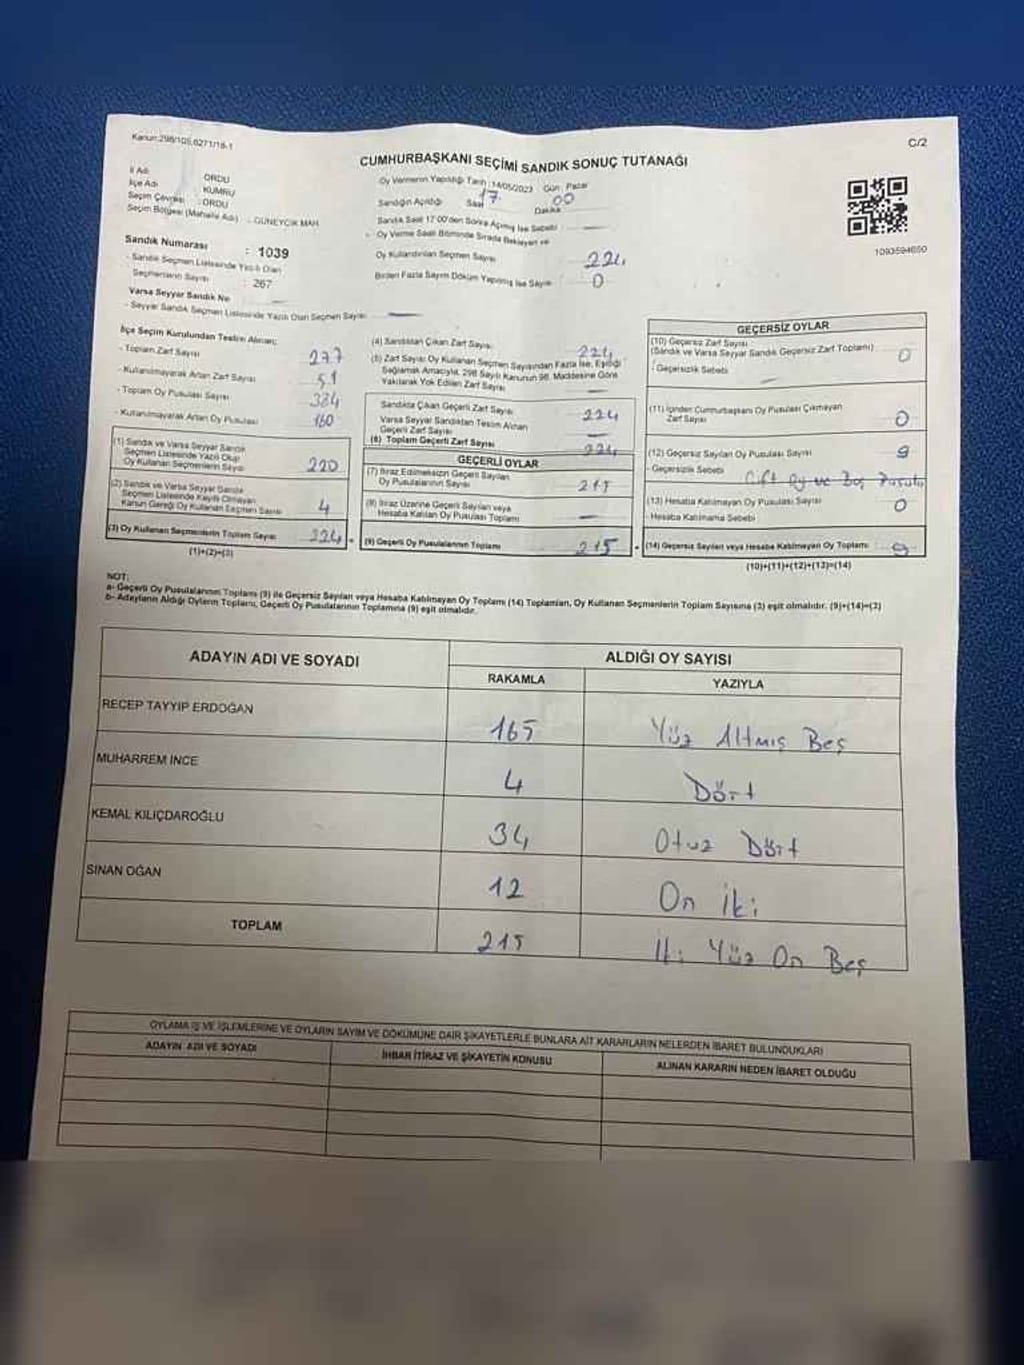 Kanun:298/105,6271/18-1
C/2
CUMHURBAŞKANI SEÇİMİ SANDIK SONUÇ TUTANAĞI
İl Adı : ORDU
İlçe Adı : KUMRU
Seçim Çevresi : ORDU
Seçim Bölgesi (Mahalle Adı) : GÜNEYCİK MAH
Sandık Numarası : 1039
- Sandık Seçmen Listesinde Yazılı Olan
Seçmenlerin Sayısı : 267
Varsa Seyyar Sandık No
- Seyyar Sandık Seçmen Listesinde Yazılı Olan Seçmen Sayısı
Oy Vermenin Yapıldığı Tarih :14/05/2023 Gün : Pazar
Sandığın Açıldığı Saat 17 Dakika 00
Sandık Saat 17:00'den Sonra Açılmış İse Sebebi
- Oy Verme Saati Bitiminde Sırada Bekleyen ve
Oy Kullandırılan Seçmen Sayısı 224
Birden Fazla Sayım Döküm Yapılmış İse Sayısı 0
1093594650
İlçe Seçim Kurulundan Teslim Alınan;
- Toplam Zarf Sayısı 277
- Kullanılmayarak Artan Zarf Sayısı 51
- Toplam Oy Pusulası Sayısı 384
- Kullanılmayarak Artan Oy Pusulası 160
(1) Sandık ve Varsa Seyyar Sandık
Seçmen Listesinde Yazılı Olup
Oy Kullanan Seçmenlerin Sayısı 220
(2) Sandık ve Varsa Seyyar Sandık
Seçmen Listesinde Kayıtlı Olmayan
Kanun Gereği Oy Kullanan Seçmen Sayısı 4
(3) Oy Kullanan Seçmenlerin Toplam Sayısı 224
(1)+(2)=(3)
(4) Sandıktan Çıkan Zarf Sayısı 224
(5) Zarf Sayısı Oy Kullanan Seçmen Sayısından Fazla İse, Eşitliği
Sağlamak Amacıyla, 298 Sayılı Kanunun 98. Maddesine Göre
Yakılarak Yok Edilen Zarf Sayısı
Sandıkta Çıkan Geçerli Zarf Sayısı 224
Varsa Seyyar Sandıktan Teslim Alınan
Geçerli Zarf Sayısı
(6) Toplam Geçerli Zarf Sayısı 224
GEÇERLİ OYLAR
(7) İtiraz Edilmeksizin Geçerli Sayılan
Oy Pusulalarının Sayısı 215
(8) İtiraz Üzerine Geçerli Sayılan veya
Hesaba Katılan Oy Pusulası Toplamı
(9) Geçerli Oy Pusulalarının Toplamı 215
GEÇERSİZ OYLAR
(10) Geçersiz Zarf Sayısı
(Sandık ve Varsa Seyyar Sandık Geçersiz Zarf Toplamı) 0
- Geçersizlik Sebebi
(11) İçinden Cumhurbaşkanı Oy Pusulası Çıkmayan
Zarf Sayısı 0
(12) Geçersiz Sayılan Oy Pusulası Sayısı 9
- Geçersizlik Sebebi Çift oy ve Boş Pusula
(13) Hesaba Katılmayan Oy Pusulası Sayısı 0
- Hesaba Katılmama Sebebi
(14) Geçersiz Sayılan veya Hesaba Katılmayan Oy Toplamı 9
(10)+(11)+(12)+(13)=(14)
NOT:
a- Geçerli Oy Pusulalarının Toplamı (9) ile Geçersiz Sayılan veya Hesaba Katılmayan Oy Toplamı (14) Toplamları, Oy Kullanan Seçmenlerin Toplam Sayısına (3) eşit olmalıdır. (9)+(14)=(3)
b- Adayların Aldığı Oyların Toplamı, Geçerli Oy Pusulalarının Toplamına (9) eşit olmalıdır.
ADAYIN ADI VE SOYADI
ALDIĞI OY SAYISI
RAKAMLA YAZIYLA
RECEP TAYYİP ERDOĞAN 165 Yüz Altmış Beş
MUHARREM İNCE 4 Dört
KEMAL KILIÇDAROĞLU 34 Otuz Dört
SİNAN OĞAN 12 On iki
TOPLAM 215 İki Yüz On Beş
OYLAMA İŞ VE İŞLEMLERİNE VE OYLARIN SAYIM VE DÖKÜMÜNE DAİR ŞİKAYETLERLE BUNLARA AİT KARARLARIN NELERDEN İBARET BULUNDUKLARI
ADAYIN ADI VE SOYADI İHBAR İTİRAZ VE ŞİKAYETİN KONUSU ALINAN KARARIN NEDEN İBARET OLDUĞU